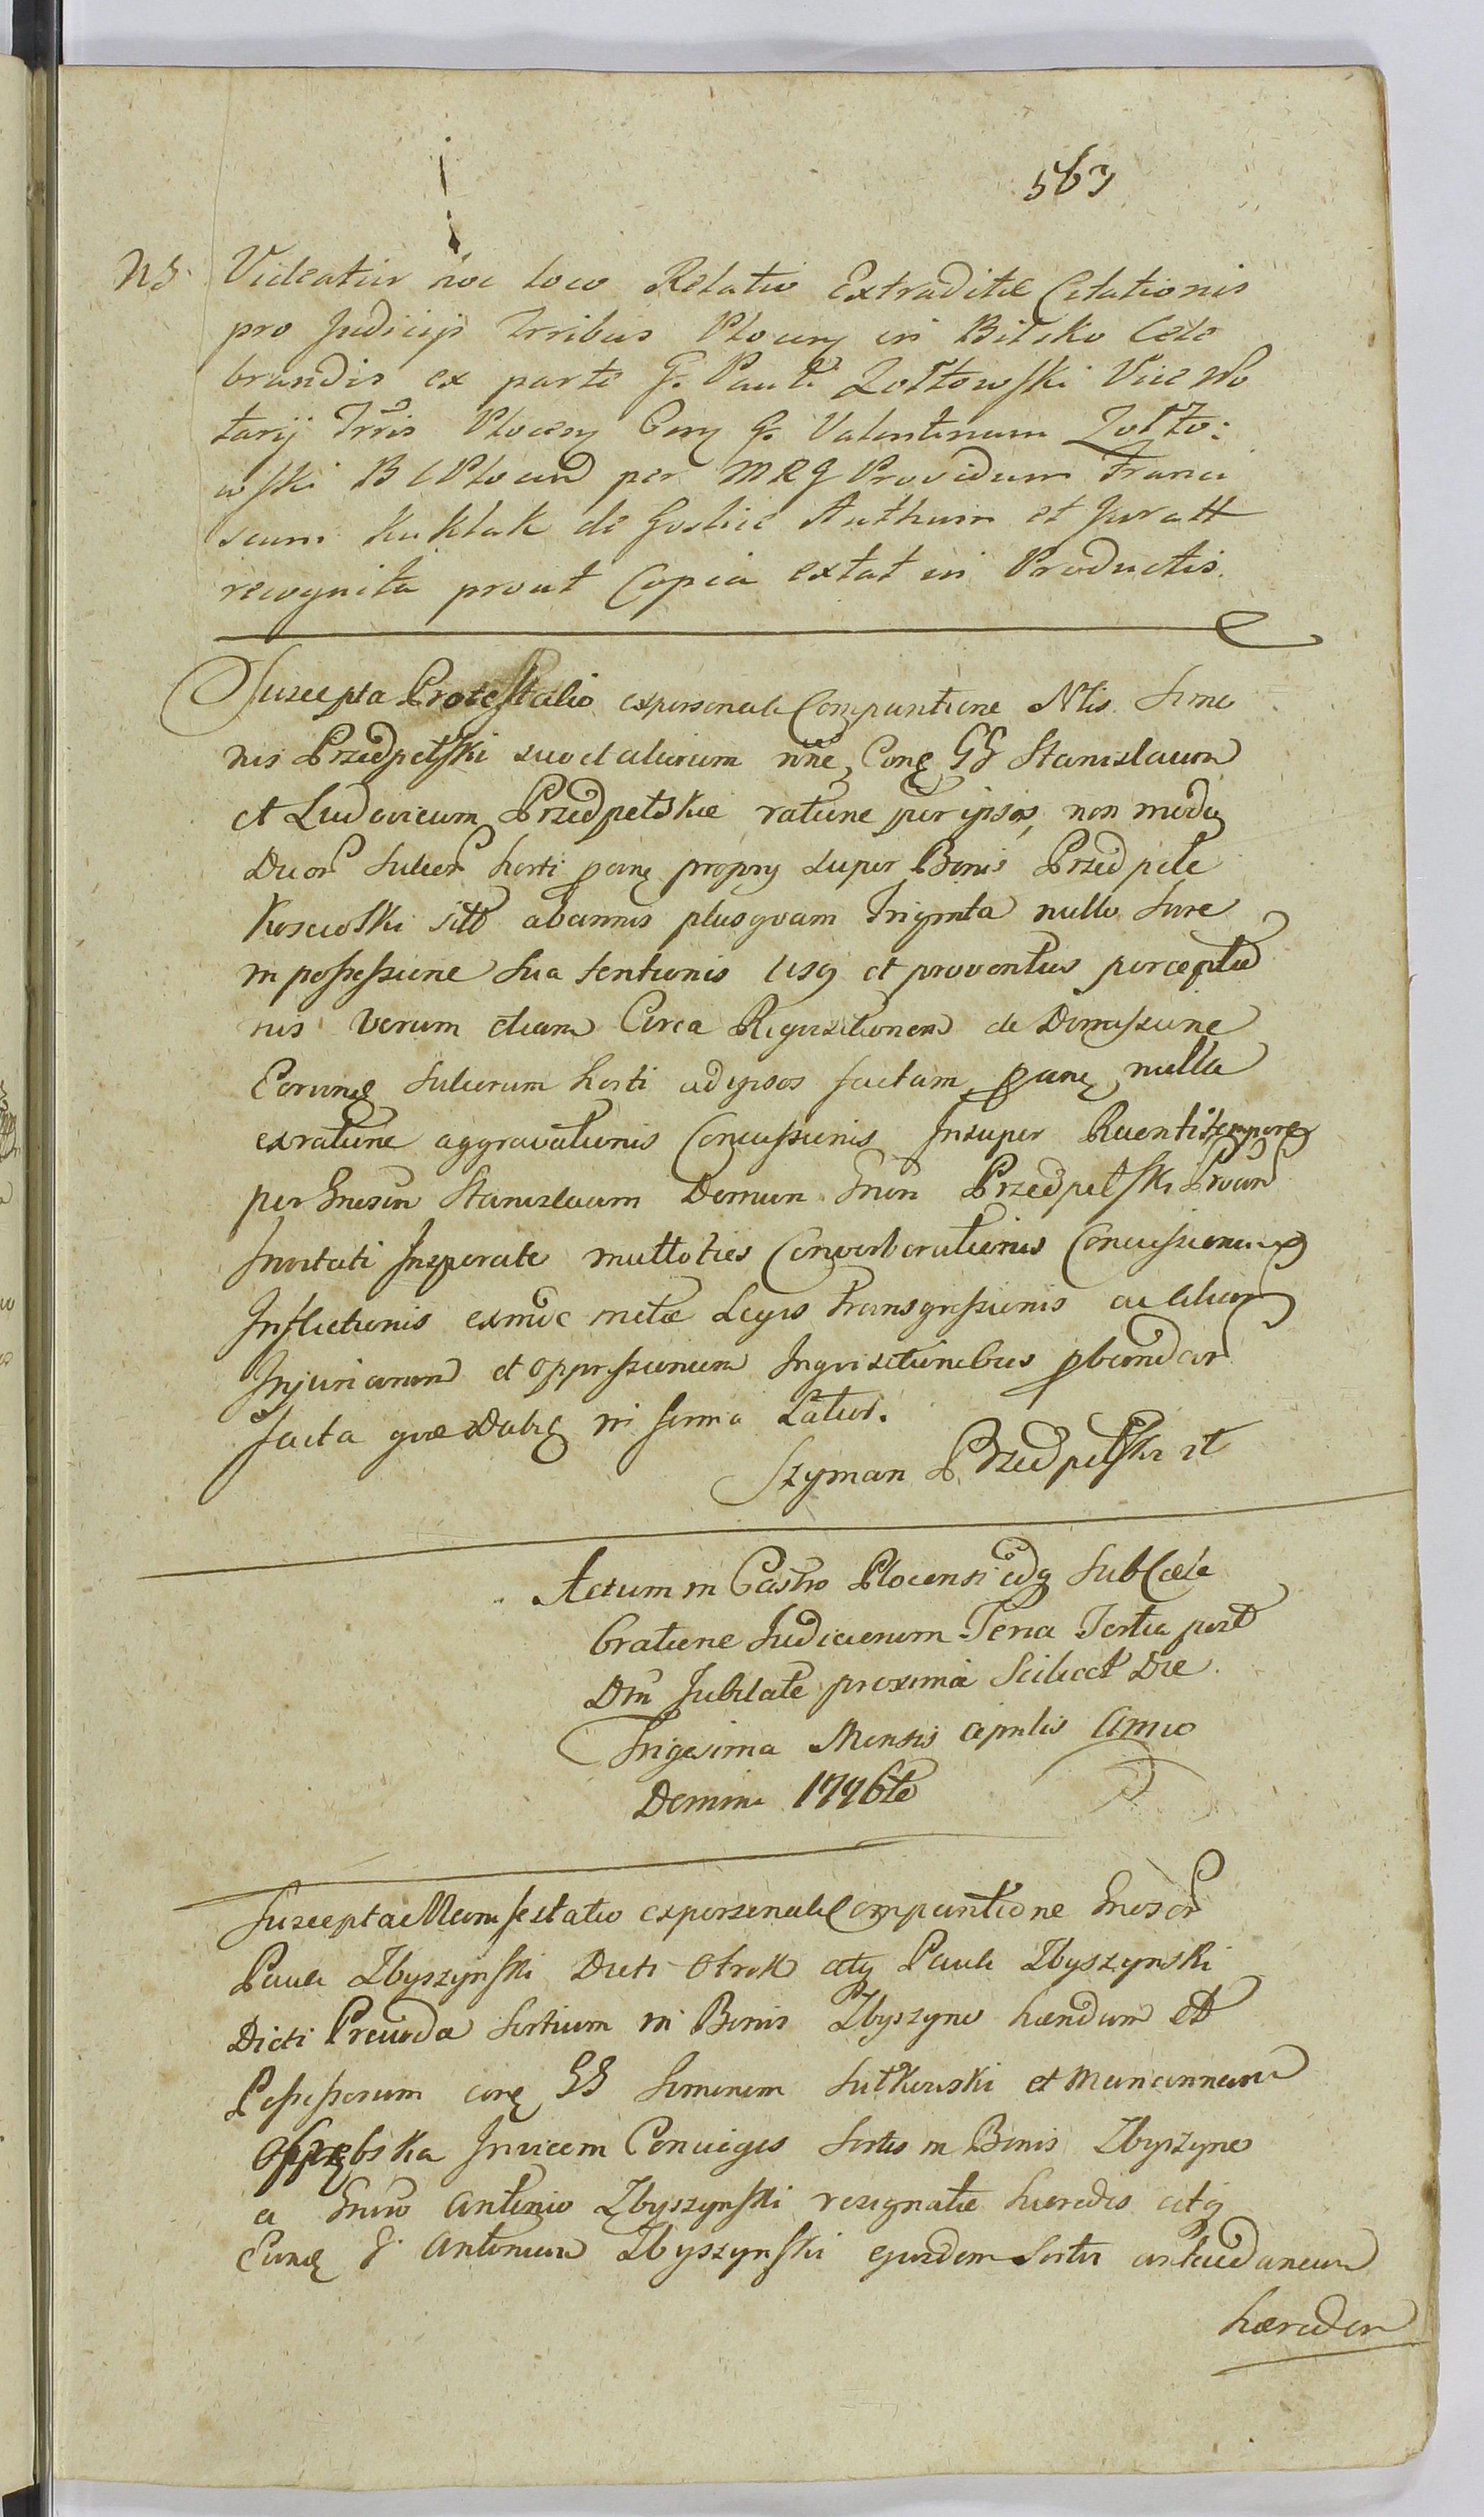 563
NB. Videatur hoc loco Relatio Extraditæ Citationis
pro Judicijs Trribus Plocen in Bilsko Cele
brandis ex parte G. Pauli Zołtowski Vice No
tarij Trris Plocen Con G. Valentinum Zołto:
wski B C Plocen per MRG Providum Franci
scum Kuklak de Goslice Authum et Juratt
recognita prout Copia extat in Productis.
Suscepta Protestatio ex personali Comparitione Nlis Simo
nis Przedpełski suo et aliorum nne, Conę GG Stanislaum
et Ludovicum Przedpełskie ratione per ipsos, non modo
Duor Sulcor horti pcnę proprij super Bonis Przedpełe
Kosciołki sitt ab annis plusquam Triginta nullo Jure
in possessione sua tentionis usq et proventus perceptio
nis verum etiam Circa Requisitionem de Dimissione
Eorund Sulcorum horti ad ipsos factam, nulla
ex ratione aggravationis Concussionis Insuper Recenti tempore
per Gnosum Stanislaum Domum Gnon Przedpełski Proun
Invitati Insperate multoties Converberationis Concussionumq
Inflictionis ex nunc metæ Legis Transgressionis ac aliarum
Injuriarum et oppressionum Inquisitionibus pbandar
facta quæ Dabit in forma Latior.
Szyman Przedpełski
Actum in Castro Plocensi idq Sub Cæle
bratione Judiciorum Feria Tertia post
Dnm Jubilate proxima Scilicet Die
Trigesima Mensis Aprilis Anno
Domini 1776to
Suscepta Manifestatio ex personali Comparitione Gnosor
Pauli Zbyszynski Dicti Otrok atq Pauli Zbyszynski
Dicti Prewoda Sortium in Bonis Zbyszyno hændum et
Possessorum conę GG Simonem Sutkowski et Mariannam
Invicem Conjuges Sortis in Bonis Zbyszyno
a Gnoso Antonio Zbyszynski resignatæ hæredes atq
Conę G. Antonium Zbyszynski ejusdem Sortis antecedaneum
hæredem